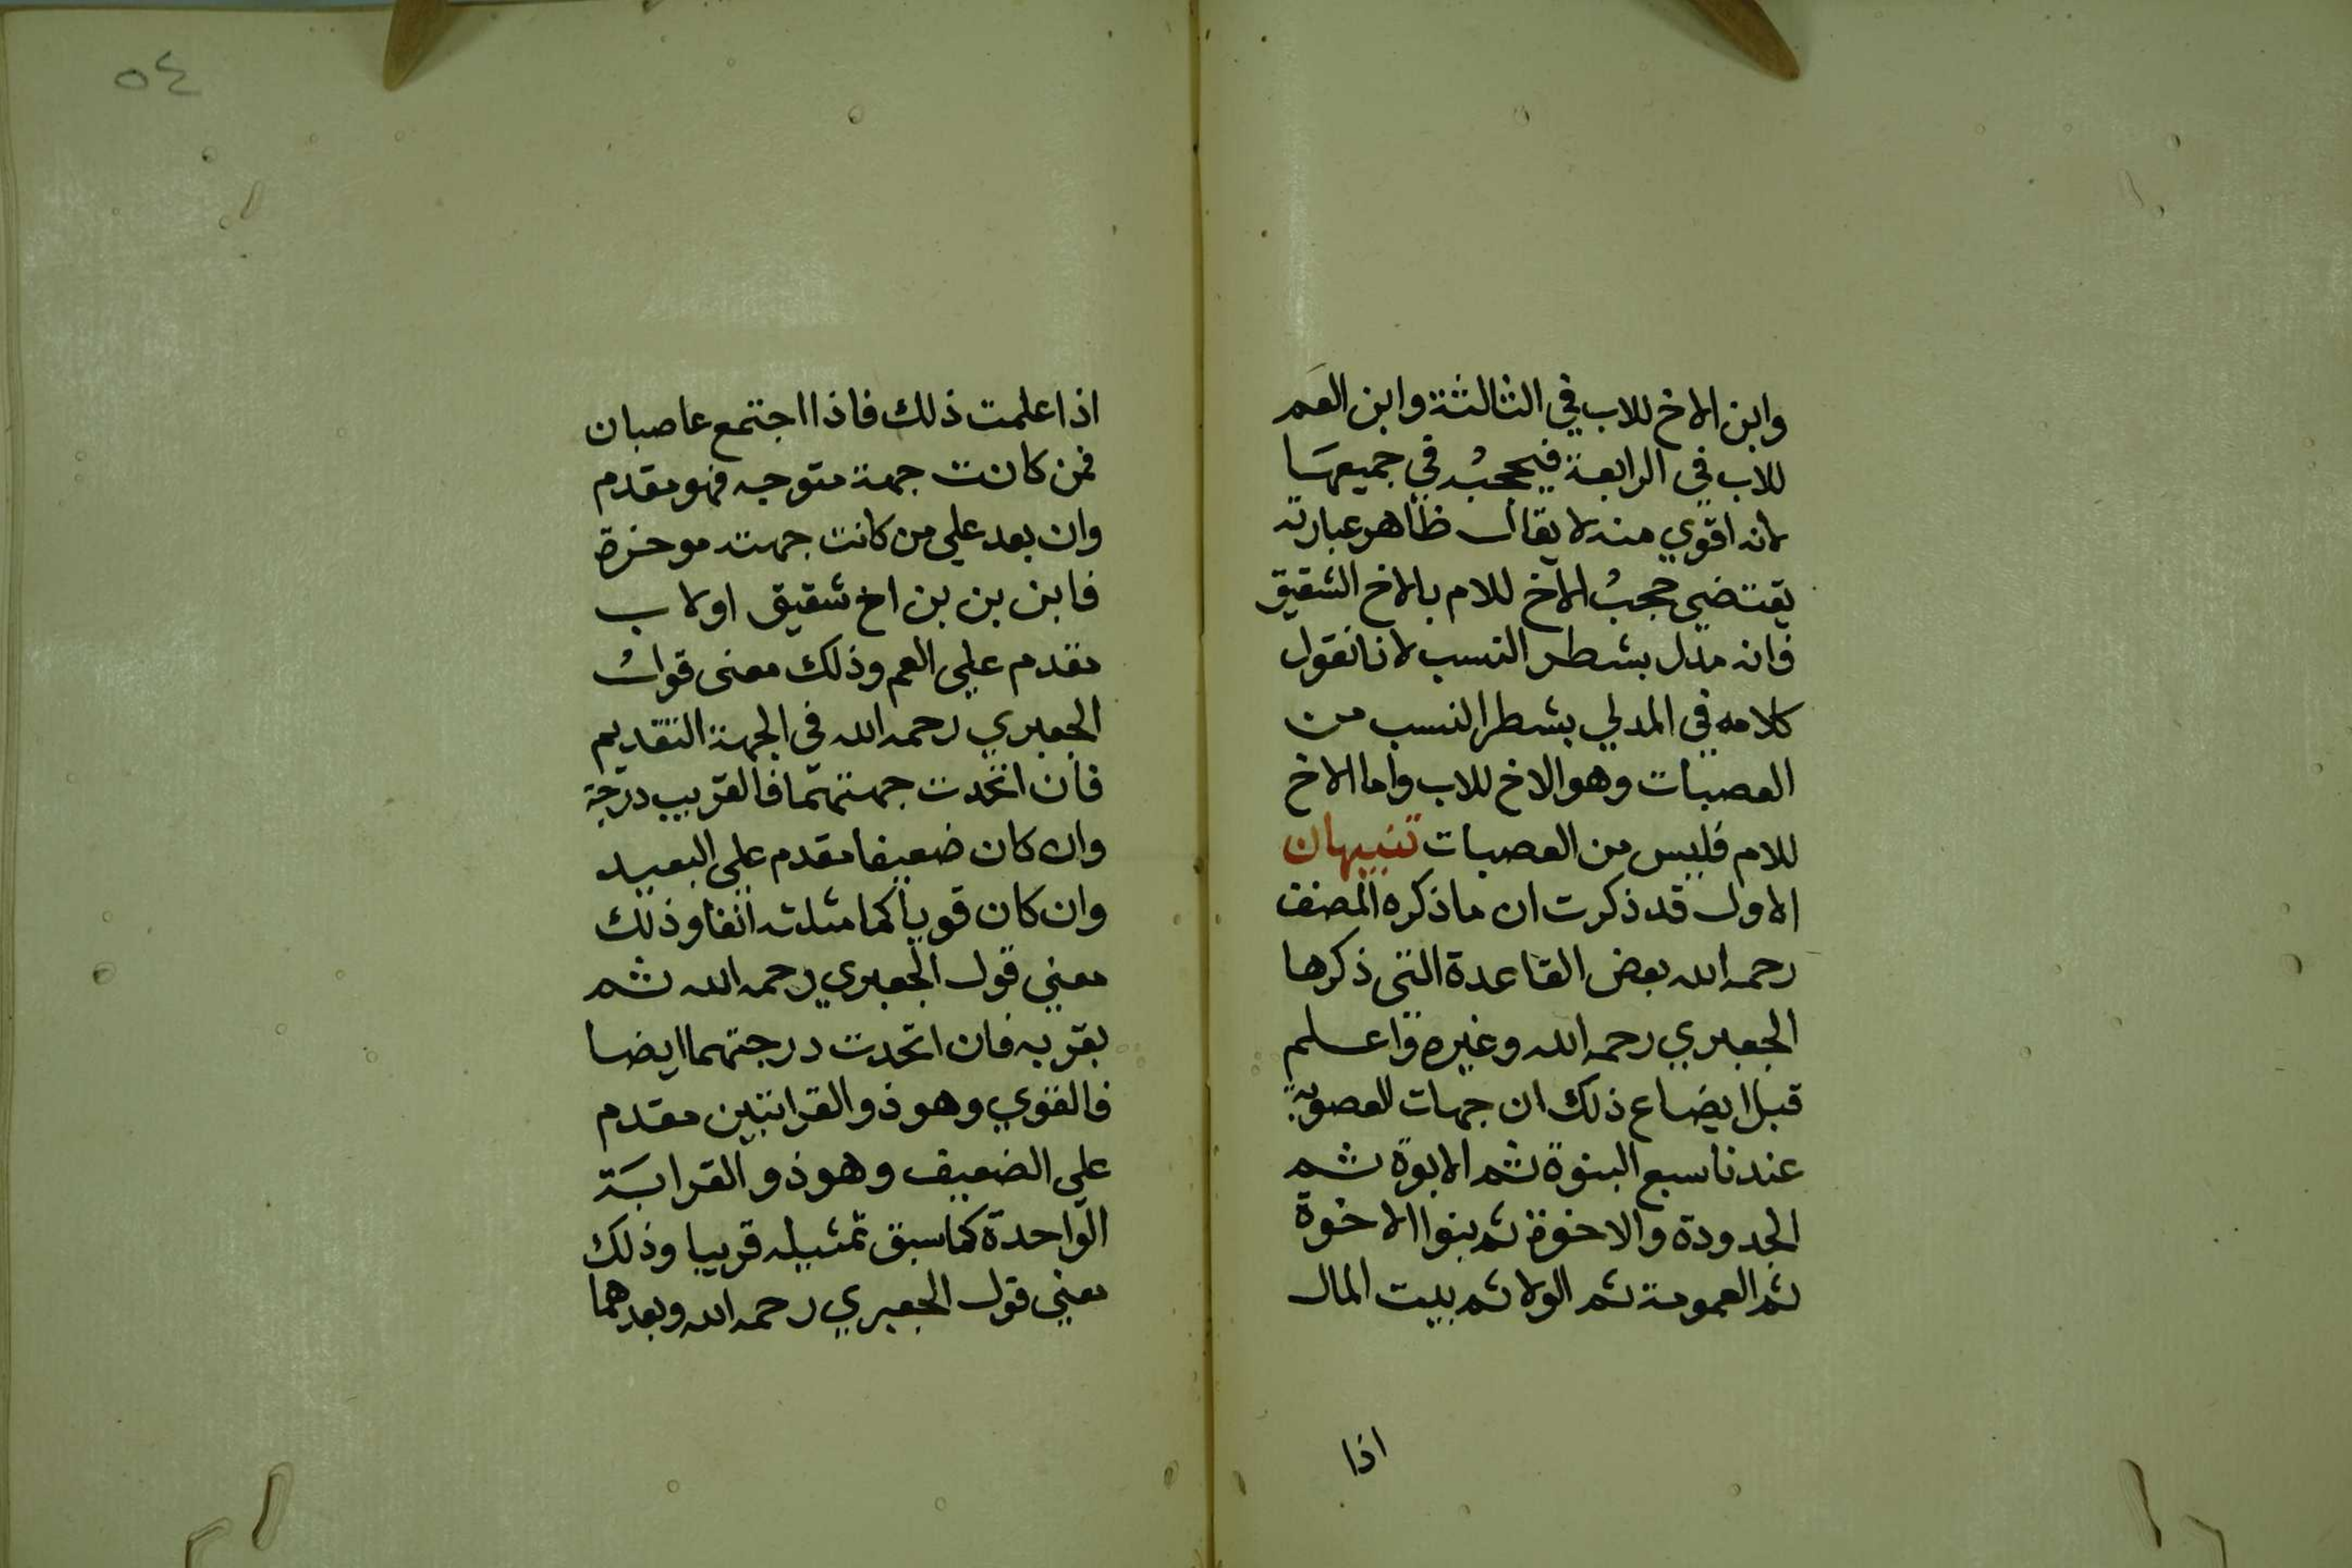 وابن الاخ للاب في الثالثة وابن العم
للاب في الرابعة فيحجبُه في جميعهَا
لانه اقوي منه لا يقال ظاهر عبارته
يقتضي حجبُ الاخ للام بالاخ الشقيق
فانه مدل بشطر النسب لانا نقول
كلامه في المدلي بشطر النسب من
العصبات وهو الاخ للاب واما الاخ
للام فليس من العصبات تنبيهان
الاول قد ذكرت ان ما ذكره المصنف
رحمه الله بعض القاعدة التي ذكرها
الجعبري رحمه الله وغيره واعلم
قبل ايضاع ذلك ان جهات العصوبة
عندنا سبع البنوة ثم الابوة ثم
الجدودة والاخوة ثم بنوا الاخوة
ثم العمومة ثم الولا ثم بيت المال
اذا
٥٤
اذا علمت ذلك فاذا اجتمع عاصبان
فمن كانت جهة متوجه فهو مقدم
وان بعد علي من كانت جهته موخرة
فابن بن بن اخ شقيق او لاب
مقدم علي العم وذلك معنى قولُ
الجعبري رحمه الله في الجهة التقديم
فان اتحدت جهتهما فالقريب درجة
وان كان ضعيفا مقدم علي البعيد
وان كان قويا كما مثلته انفا وذلك
معني قول الجعبري رحمه الله ثم
بقربه فان اتحدت درجتهما ايضا
فالقوي وهو ذو القرابتين مقدم
علي الضعيف وهو ذو القرابَة
الواحدة كما سبق تمثيله قريبا وذلك
معني قول الجعبري رحمه الله وبعدهما